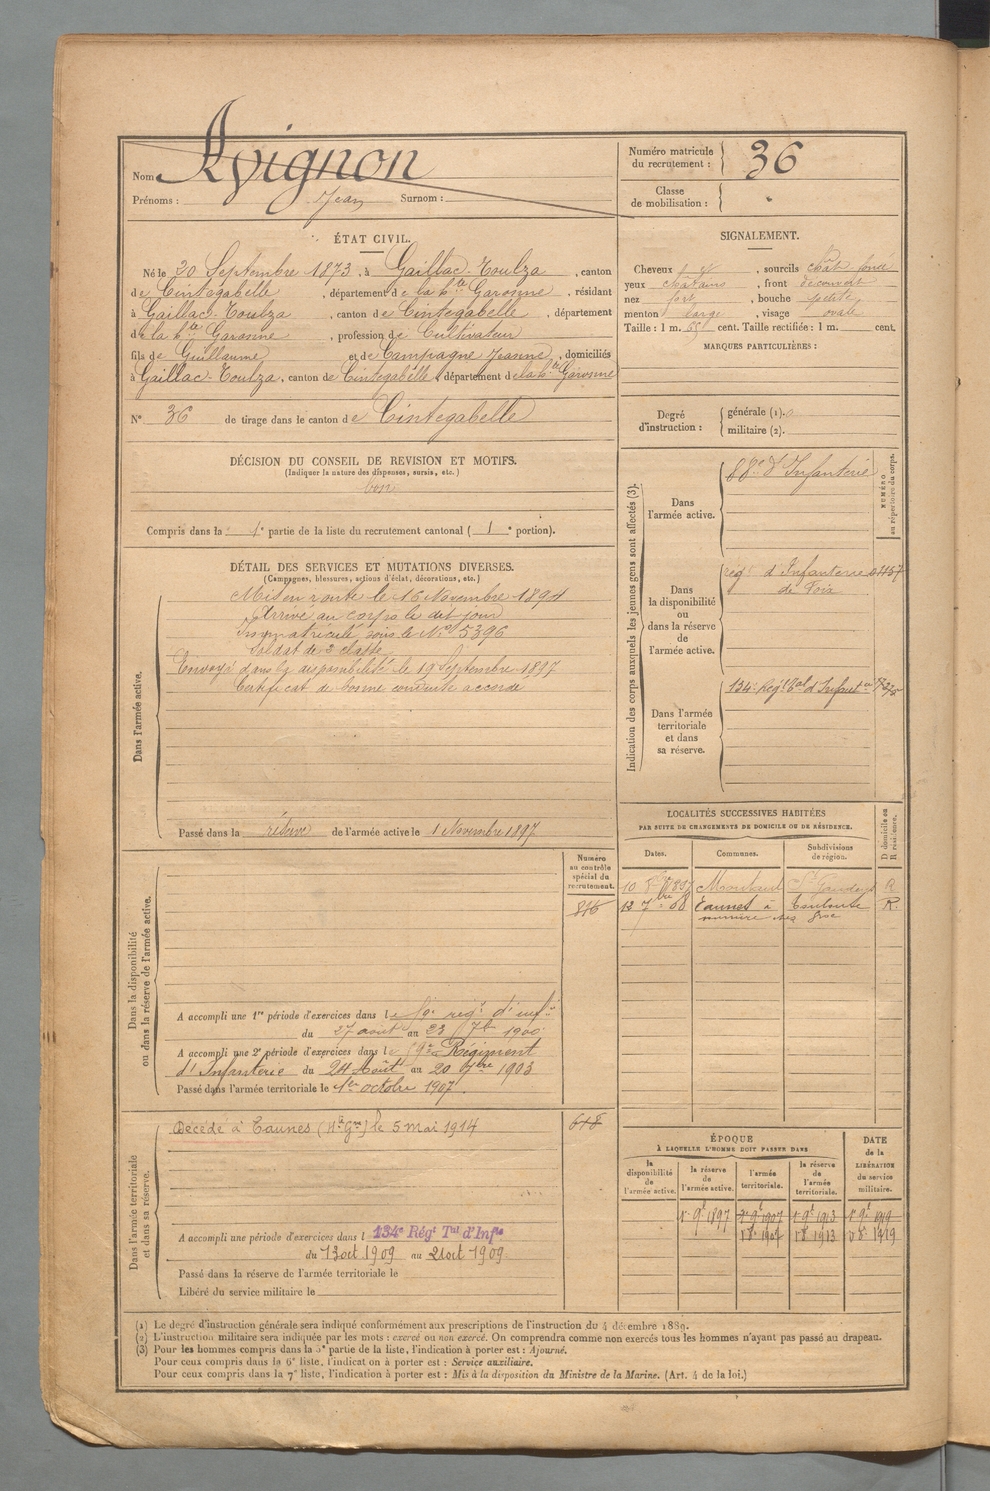 Nom Avignon
Prénoms : Jean Surnom :
Numéro matricule du recrutement : 36
Classe de mobilisation :
ÉTAT CIVIL.
Né le 20 Septembre 1873, à Gaillac-Toulza, canton
de Cintegabelle, département de la hte Garonne, résidant
à Gaillac-Toulza, canton de Cintegabelle, département
de la hte Garonne, profession de Cultivateur
fils de Guillaume et de Campagne Jeanne, domiciliés
à Gaillac-Toulza, canton de Cintegabelle, département de la hte Garonne
N° 36 de tirage dans le canton de Cintegabelle
DÉCISION DU CONSEIL DE REVISION ET MOTIFS.
(Indiquer la nature des dispenses, sursis, etc.)
bon
Compris dans la 1e partie de la liste du recrutement cantonal (1e portion).
DÉTAIL DES SERVICES ET MUTATIONS DIVERSES.
(Campagnes, blessures, actions d'éclat, décorations, etc.)
Dans l'armée active.
Mis en route le 16 Novembre 1894
Arrivé au corps le dit jour
Immatriculé sous le N° 5396
Soldat de 2 classe
Envoyé dans la disponibilité le 19 Septembre 1897
Certificat de bonne conduite accordé
Passé dans la réserve de l'armée active le 1 Novembre 1897
Dans la disponibilité
ou dans la réserve de l'armée active.
Numéro
au contrôle
spécial du
recrutement.
816
A accompli une 1re période d'exercices dans le 59e rég.t d'inf.ie
du 27 août au 23 7bre 1900
A accompli une 2e période d'exercices dans le 59e Régiment
d'Infanterie du 24 Août au 20 7bre 1903
Passé dans l'armée territoriale le 1er octobre 1907.
Dans l'armée territoriale
et dans sa réserve.
Décédé à Eaunes (Hte Gne) le 5 mai 1914
618
A accompli une période d'exercices dans l 134e Régt Tal d'Infie
du 13 oct 1909 au 21 oct 1909
Passé dans la réserve de l'armée territoriale le
Libéré du service militaire le
SIGNALEMENT.
Cheveux, sourcils chât. foncé
yeux châtains, front découvert
nez fort, bouche petite
menton large, visage ovale
Taille : 1 m. cent. Taille rectifiée : 1 m. cent.
MARQUES PARTICULIÈRES :
Degré d'instruction :
générale (1). 0
militaire (2).
Indication des corps auxquels les jeunes gens sont affectés (3).
NUMÉRO
au répertoire du corps.
Dans
l'armée active.
88e d'Infanterie
Dans
la disponibilité
ou
dans la réserve
de
l'armée active.
régt d'Infanterie
de Foix
Dans l'armée
territoriale
et dans
sa réserve.
134e Régt Tal d'Infanterie
LOCALITÉS SUCCESSIVES HABITÉES
PAR SUITE DE CHANGEMENTS DE DOMICILE OU DE RÉSIDENCE.
Dates. Communes. Subdivisions de région. D domicile ou R résidence.
10 1897 Montaut St Gaudens R
12 7bre 08 Eaunes à Toulouse R.
ÉPOQUE
À LAQUELLE L'HOMME DOIT PASSER DANS
DATE
de la
LIBÉRATION
du service
militaire.
la disponibilité de l'armée active.
la réserve de l'armée active.
l'armée territoriale.
la réserve de l'armée territoriale.
1 9t 1897 1 9t 1907 1 9t 1913 1 9t 1919
1 8e 1907 1 8e 1913 1 8e 1919
(1) Le degré d'instruction générale sera indiqué conformément aux prescriptions de l'instruction du 4 décembre 1889.
(2) L'instruction militaire sera indiquée par les mots : exercé ou non exercé. On comprendra comme non exercés tous les hommes n'ayant pas passé au drapeau.
(3) Pour les hommes compris dans la 5e partie de la liste, l'indication à porter est : Ajourné.
Pour ceux compris dans la 6e liste, l'indication à porter est : Service auxiliaire.
Pour ceux compris dans la 7e liste, l'indication à porter est : Mis à la disposition du Ministre de la Marine. (Art. 4 de la loi.)